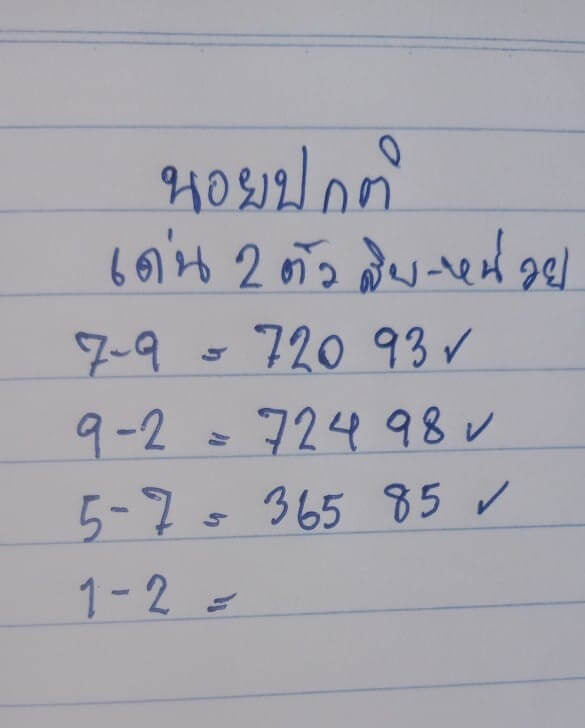 นอยปกติ
เด่น 2 ตัว สิบ-หน่วย
7-9 = 720 93 ✓
9-2 = 724 98 ✓
5-7 = 365 85 ✓
1-2 =